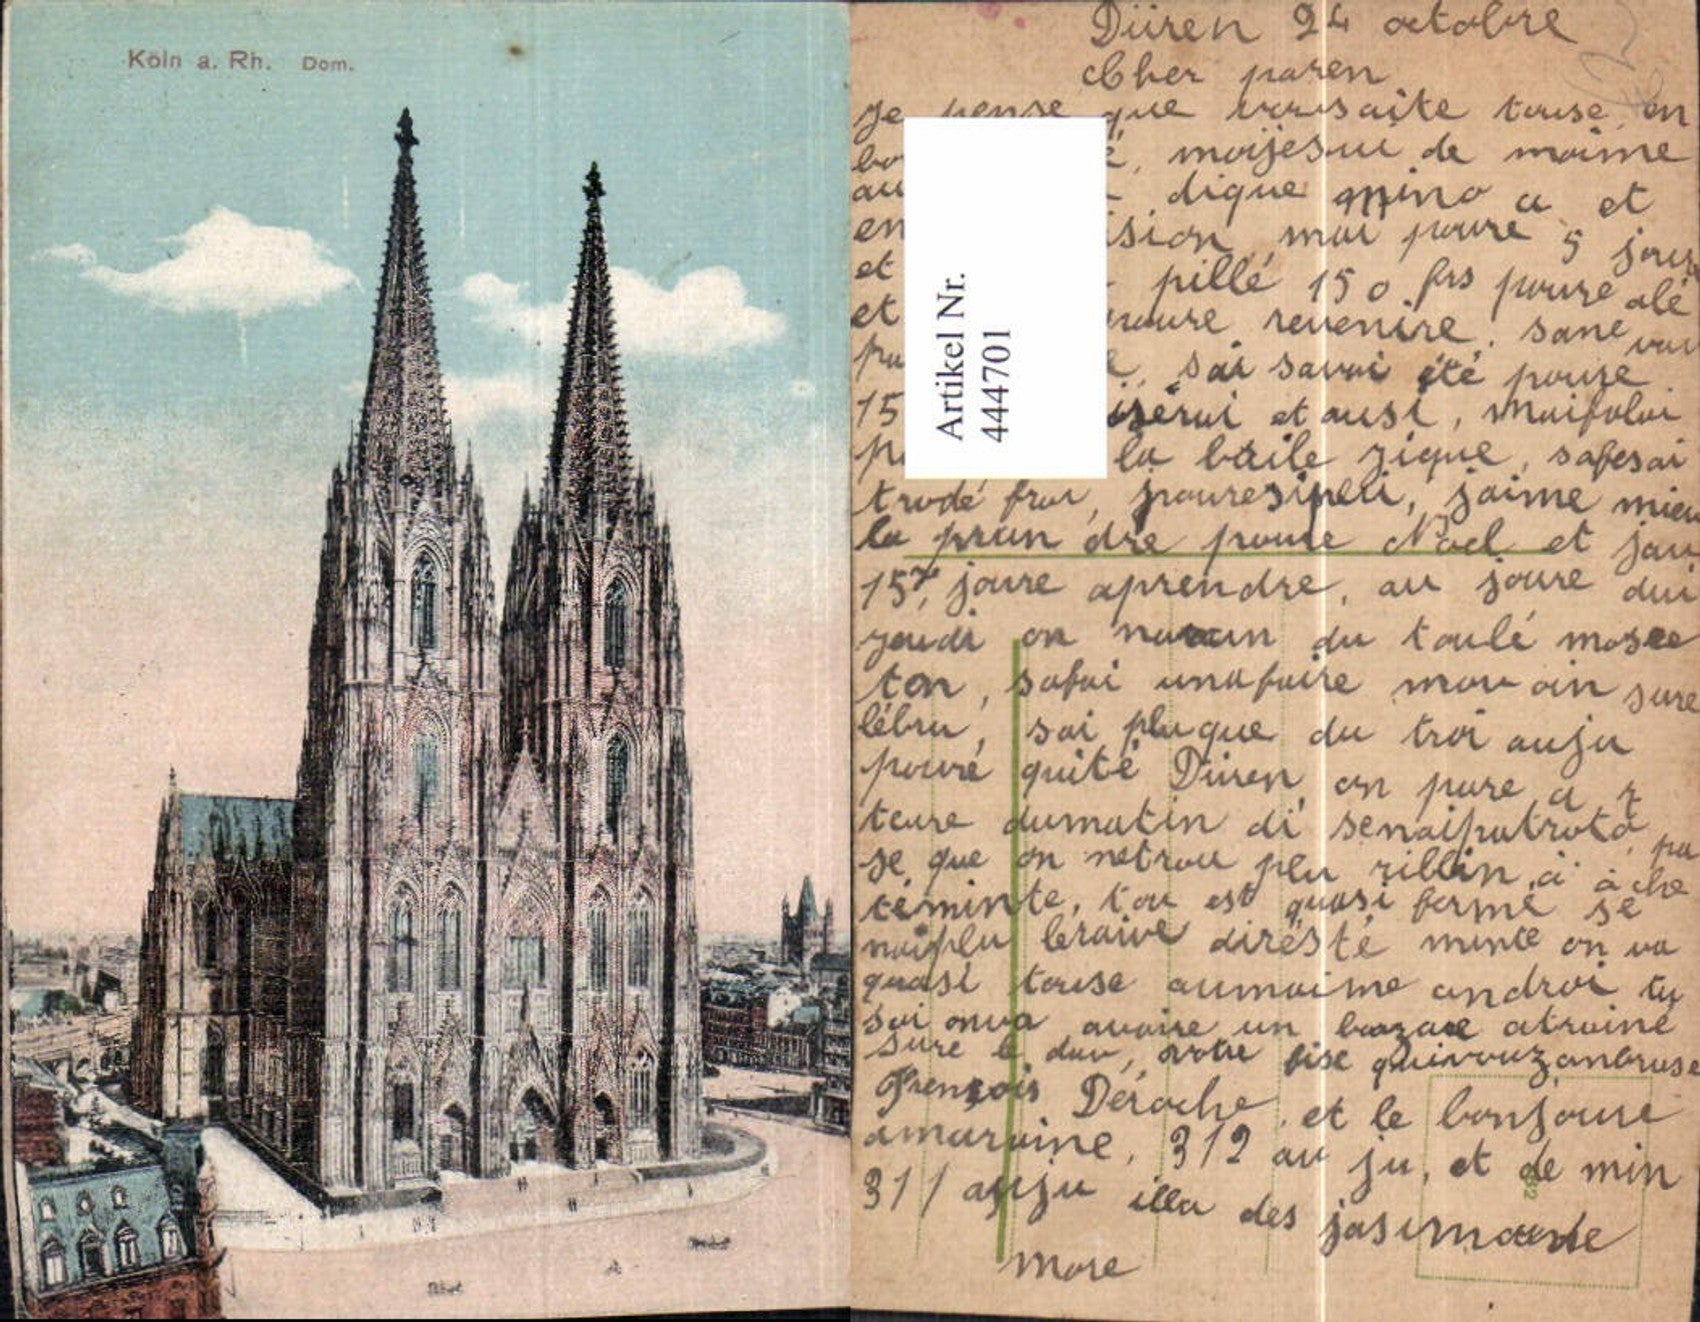 Köln a. Rh. Dom.
Düren 24 octobre
Cher paren
je pense que vousaite touse en
bo , moijesui de maime
au dique mino a et
en ision, moi poure 5 jour
et pillé 150 frs poure alé
et revenire. sane vou
pu sai savoi été poure
15 iserai et ausi, maifoloi
p la baile zique, safesai
trode froi, pouresipeli, jaime mieu
la pran dre poure Noel et jau
15, joure aprendre, au joure dui
jeudi on du toulé
ton, safai unafaire mou oin sure
lébru, sai pluque du troi auju
pouré quité Düren on pare a 7
teure dumatin di senaipatroto, pa
se que on netrou plu rillin a ache
té minte, tou est quasi fermé se
naiplu leraive diresté minte on va
quasi touse aumaime androi tu
sai onva avoire un bazare atrainé
sure le dau, votre fise quivouzanbruse
François Déroche, et le bonjoure
amaraine, 312 au ju, et de min
311 auju illa des jasimande
more
Artikel Nr.
444701